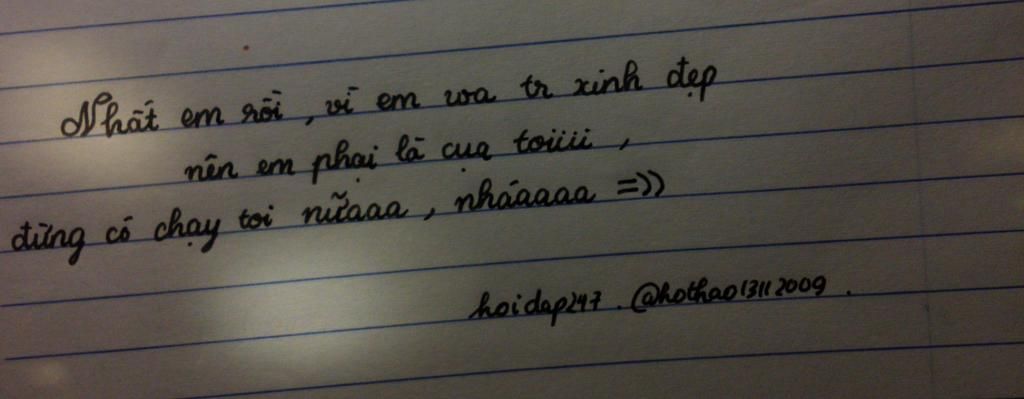 Nhất em rồi, vì em wa tr xinh đẹp
nên em phại là cuạ toiiii,
đừng có chạy toi nữaaa, nháaaaa =))
hoidap247. @hothao13112009.